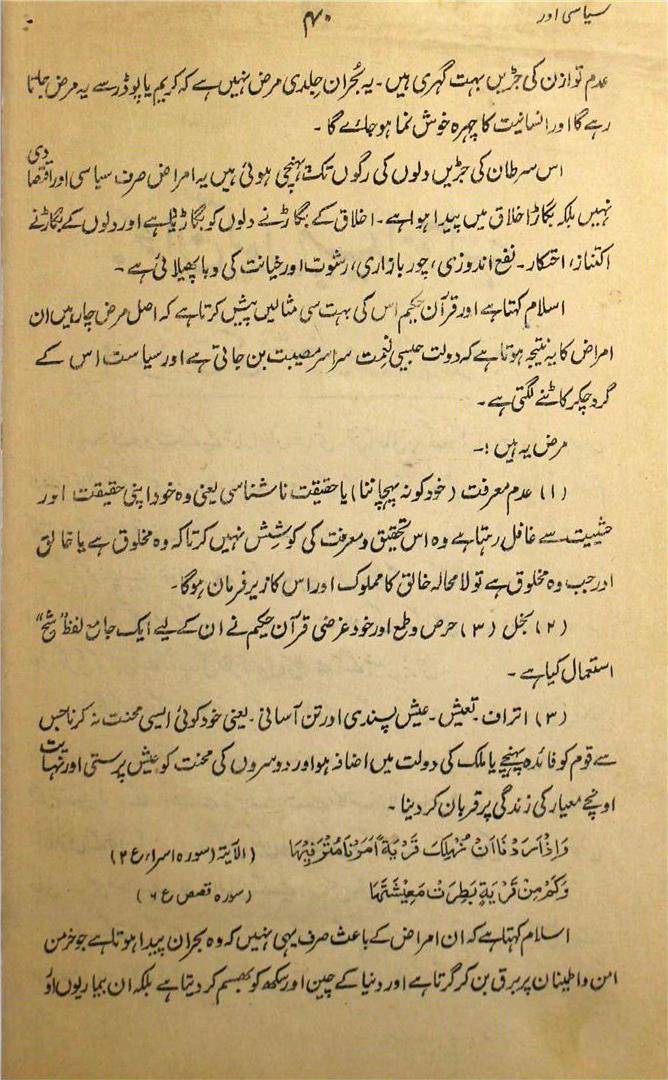 سیاسی اور
۴۰
عدم توازن کی جڑیں بہت گہری ہیں۔ یہ بُحران جِلدی مرض نہیں ہے کہ کریم یا پوڈر سے یہ مرض جاتا
رہے گا اور انسانیت کا چہرہ خوش نما ہو جائے گا۔
اس سرطان کی جڑیں دلوں کی رگوں تک پہنچی ہوئی ہیں یہ امراض صرف سیاسی اور اقتصادی
نہیں بلکہ بگاڑ اخلاق میں پیدا ہوا ہے۔ اخلاق کے بگاڑ نے دلوں کو بگاڑ دیا ہے اور دلوں کے بگاڑ نے
اکتناز، احتکار۔ نفع اندوزی، چور بازاری، رشوت اور خیانت کی وبا پھیلائی ہے۔
اسلام کہتا ہے اور قرآن حکیم اس کی بہت سی مثالیں پیش کرتا ہے کہ اصل مرض چار ہیں ان
امراض کا یہ نتیجہ ہوتا ہے کہ دولت جیسی نعمت سراسر مصیبت بن جاتی ہے اور سیاست اس کے
گرد چکر کاٹنے لگتی ہے۔
مرض یہ ہیں :۔
(۱) عدم معرفت (خود کو نہ پہچاننا) یا حقیقت ناشناسی یعنی وہ خود اپنی حقیقت اور
حیثیت سے غافل رہتا ہے وہ اس تحقیق و معرفت کی کوشش نہیں کرتا کہ وہ مخلوق ہے یا خالق
اور جب وہ مخلوق ہے تو لا محالہ خالق کا مملوک اور اس کا زیر فرمان ہوگا۔
(۲) بخل (۳) حرص و طمع اور خود غرضی قرآن حکیم نے ان کے لیے ایک جامع لفظ "شح"
استعمال کیا ہے۔
(۳) اتراف۔ تعیش۔ عیش پسندی اور تن آسانی۔ یعنی خود کوئی ایسی محنت نہ کرنا جس
سے قوم کو فائدہ پہنچے یا ملک کی دولت میں اضافہ ہو اور دوسروں کی محنت کو عیش پرستی اور نہایت
اونچے معیار کی زندگی پر قربان کر دینا۔
وَاِذَا اَرَدْنَا اَنْ نُهْلِكَ قَرْيَةً اَمَرْنَا مُتْرَفِيْهَا الآیۃ (سورہ اسراء ع ۲)
وَكَمْ مِنْ قَرْيَةٍ بَطِرَتْ مَعِيْشَتَهَا (سورہ قصص ع ۶)
اسلام کہتا ہے کہ ان امراض کے باعث صرف یہی نہیں کہ وہ بحران پیدا ہوتا ہے جو خرمن
امن و اطمینان پر برق بن کر گرتا ہے اور دنیا کے چین اور سکھ کو بھسم کر دیتا ہے بلکہ ان بیماریوں اور